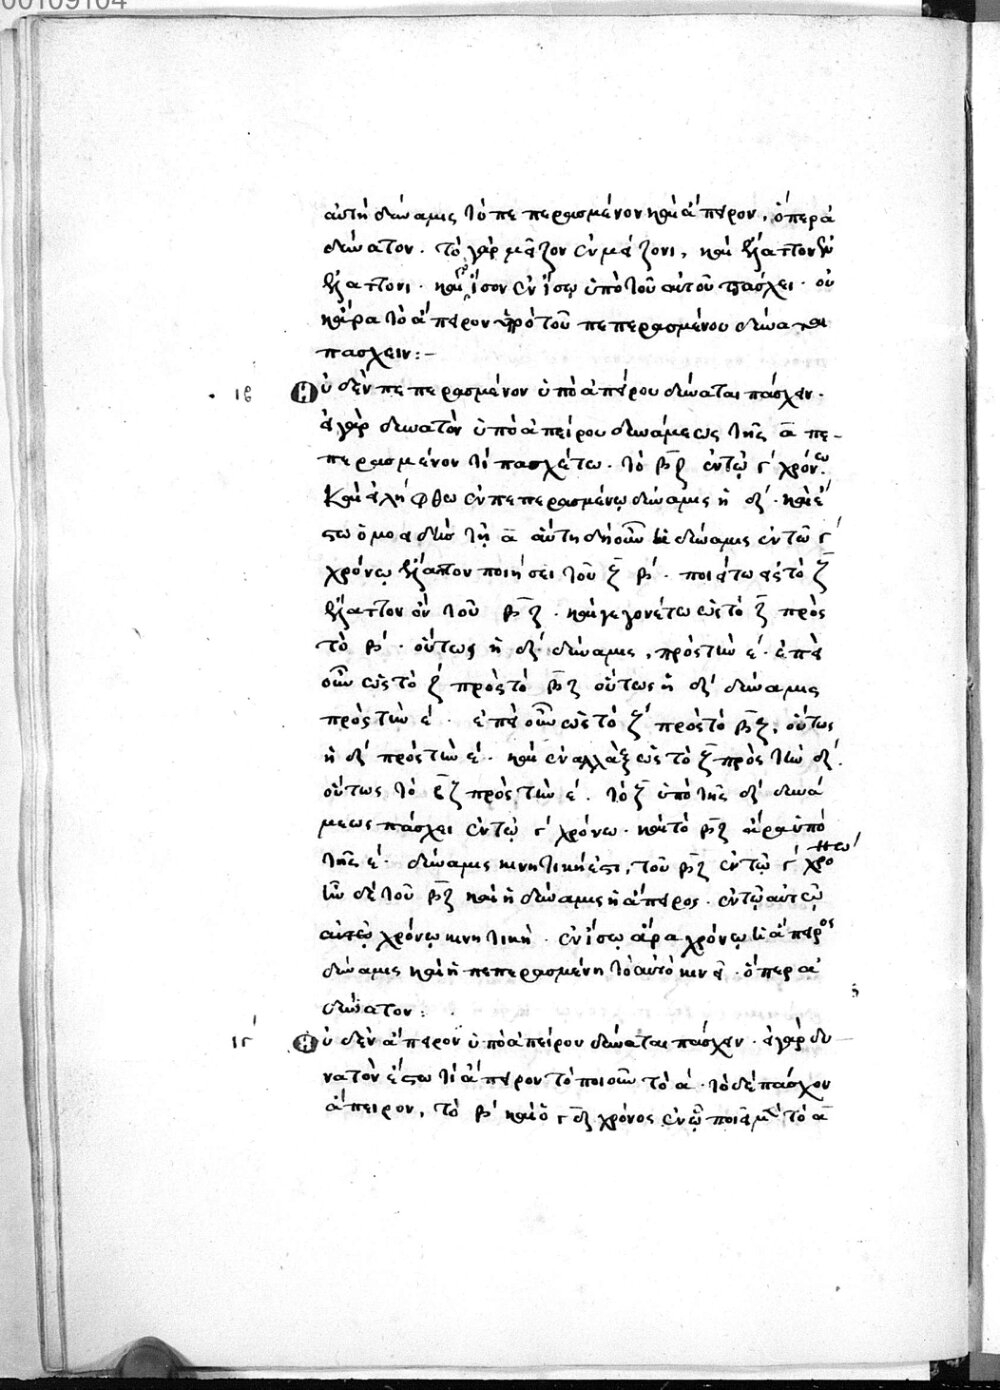 00109104
αυτὴ δύναμις τὸ πεπερασμένον καὶ ἄπειρον, ὅπερ ἀ
δύνατον. τὸ γὰρ μεῖζον ἐν μείζονι, καὶ ἔλαττον ἐν
ἐλάττονι. καὶ τὸ ἴσον ἐν ἴσῳ ὑπὸ τοῦ αὐτοῦ πάσχει. οὐ
κ ἄρα τὸ ἄπειρον ὑπὸ τοῦ πεπερασμένου δύναται
πάσχειν:-
ιβ Οὐδὲν πεπερασμένον ὑπὸ ἀπείρου δύναται πάσχειν.
εἰ γὰρ δυνατὸν ὑπὸ ἀπείρου δυνάμεως τῆς α πε-
περασμένον τι πασχέτω. τὸ βζ ἐν τῷ γ χρόνῳ.
καὶ εἰλήφθω ἐν πεπερασμένῳ δύναμις ἡ δ. καὶ ἔ
στω ὁμοειδὴς τῇ α αὕτη δὴ οὖν ἡ δύναμις ἐν τῷ γ
χρόνῳ ἔλαττον ποιήσει τοῦ ζ β. ποιείτω εἰς τὸ ζ
ἔλαττον ὂν τοῦ βζ. καὶ γεγονέτω ὡς τὸ ζ πρὸς
τὸ β. οὕτως ἡ δ δύναμις, πρὸς τὴν ε. ἐπεὶ
οὖν ὡς τὸ ζ πρὸς τὸ βζ οὕτως ἡ δ δύναμις
πρὸς τὴν ε. ἐπεὶ οὖν ὡς τὸ ζ πρὸς τὸ βζ, οὕτως
ἡ δ πρὸς τὴν ε. καὶ ἐναλλὰξ ὡς τὸ ζ πρὸς τὴν δ.
οὕτως τὸ βζ πρὸς τὴν ε. τὸ ζ ὑπὸ τῆς δ δυνά
μεως πάσχει ἐν τῷ γ χρόνῳ. καὶ τὸ βζ ἄρα ὑπὸ
τῆς ε. δύναμις κινητική ἐστι, τοῦ βζ ἐν τῷ γ χρό
ἦν δὲ τοῦ βζ καὶ ἡ δύναμις ἡ ἄπειρος. ἐν τῷ αὐτῷ
αὐτῷ χρόνῳ κινητική. ἐν ἴσῳ ἄρα χρόνῳ ἡ ἄπειρος
δύναμις καὶ ἡ πεπερασμένη τὸ αὐτὸ κινεῖ. ὅπερ ἀ
δύνατον:
ιγ Οὐδὲν ἄπειρον ὑπὸ ἀπείρου δύναται πάσχειν. εἰ γὰρ δυ
νατὸν ἔστω τι ἄπειρον τὸ ποιοῦν τὸ α. τὸ δὲ πάσχον
ἄπειρον, τὸ β καὶ ὁ γδ χρόνος ἐν ᾧ ποιεῖ μὲν τὸ α